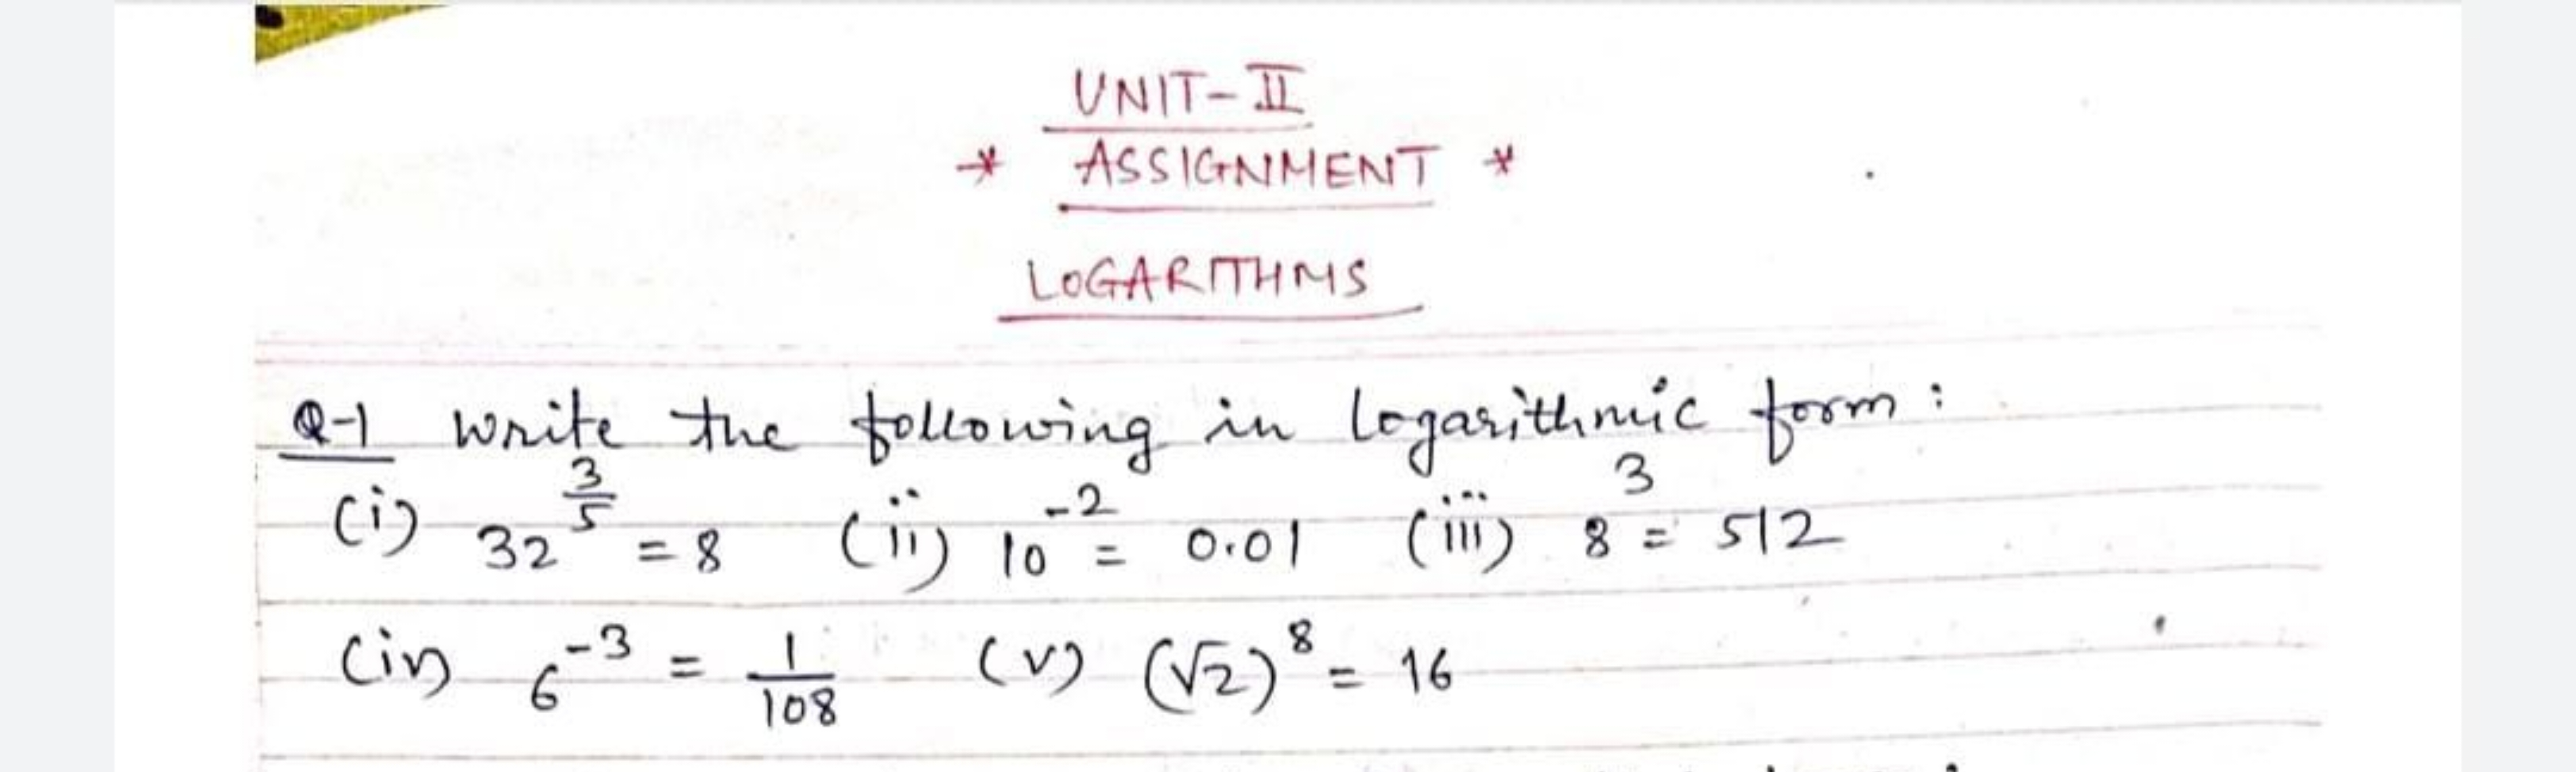 UNIT-II
* ASSIGNMENT *
LOGARITHMS
Q-1 Write the following in logarithmic form:
(i) 32^(3/5) = 8 (ii) 10^-2 = 0.01 (iii) 8^3 = 512
(iv) 6^-3 = 1/108 (v) (√2)^8 = 16